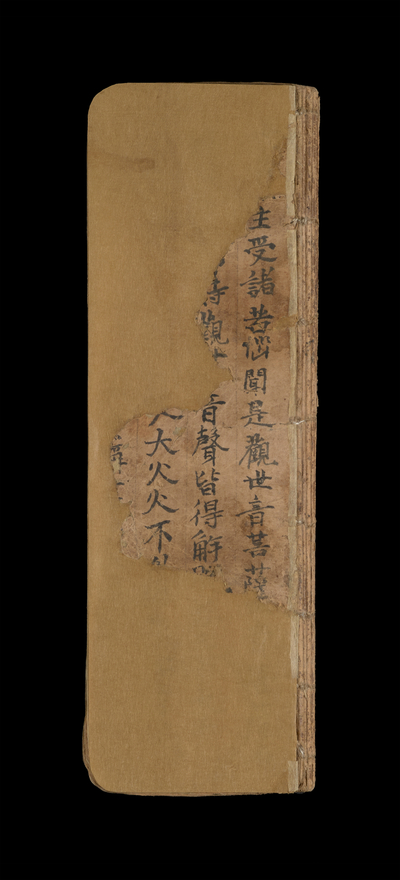 生受諸苦惱聞是觀世音菩薩
時觀音聲皆得解
入大火火不